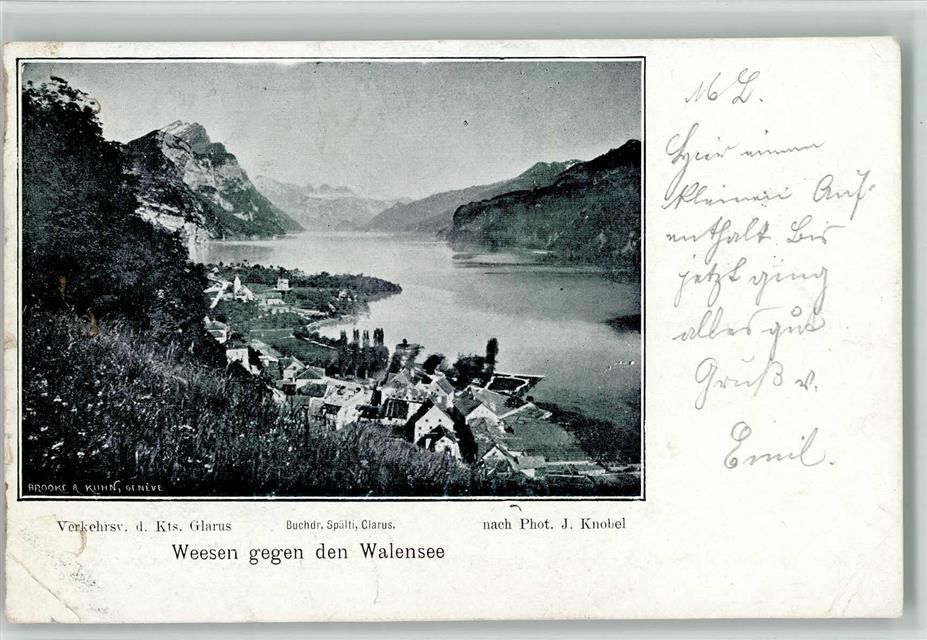 M L.
Hier einen
kleinen Auf-
enthalt. Bis
jetzt ging
alles gut
Gruß v.
Emil.
BROOKE & KUHN, GENÈVE
Verkehrsv. d. Kts. Glarus
Buchdr. Spälti, Glarus.
nach Phot. J. Knobel
Weesen gegen den Walensee